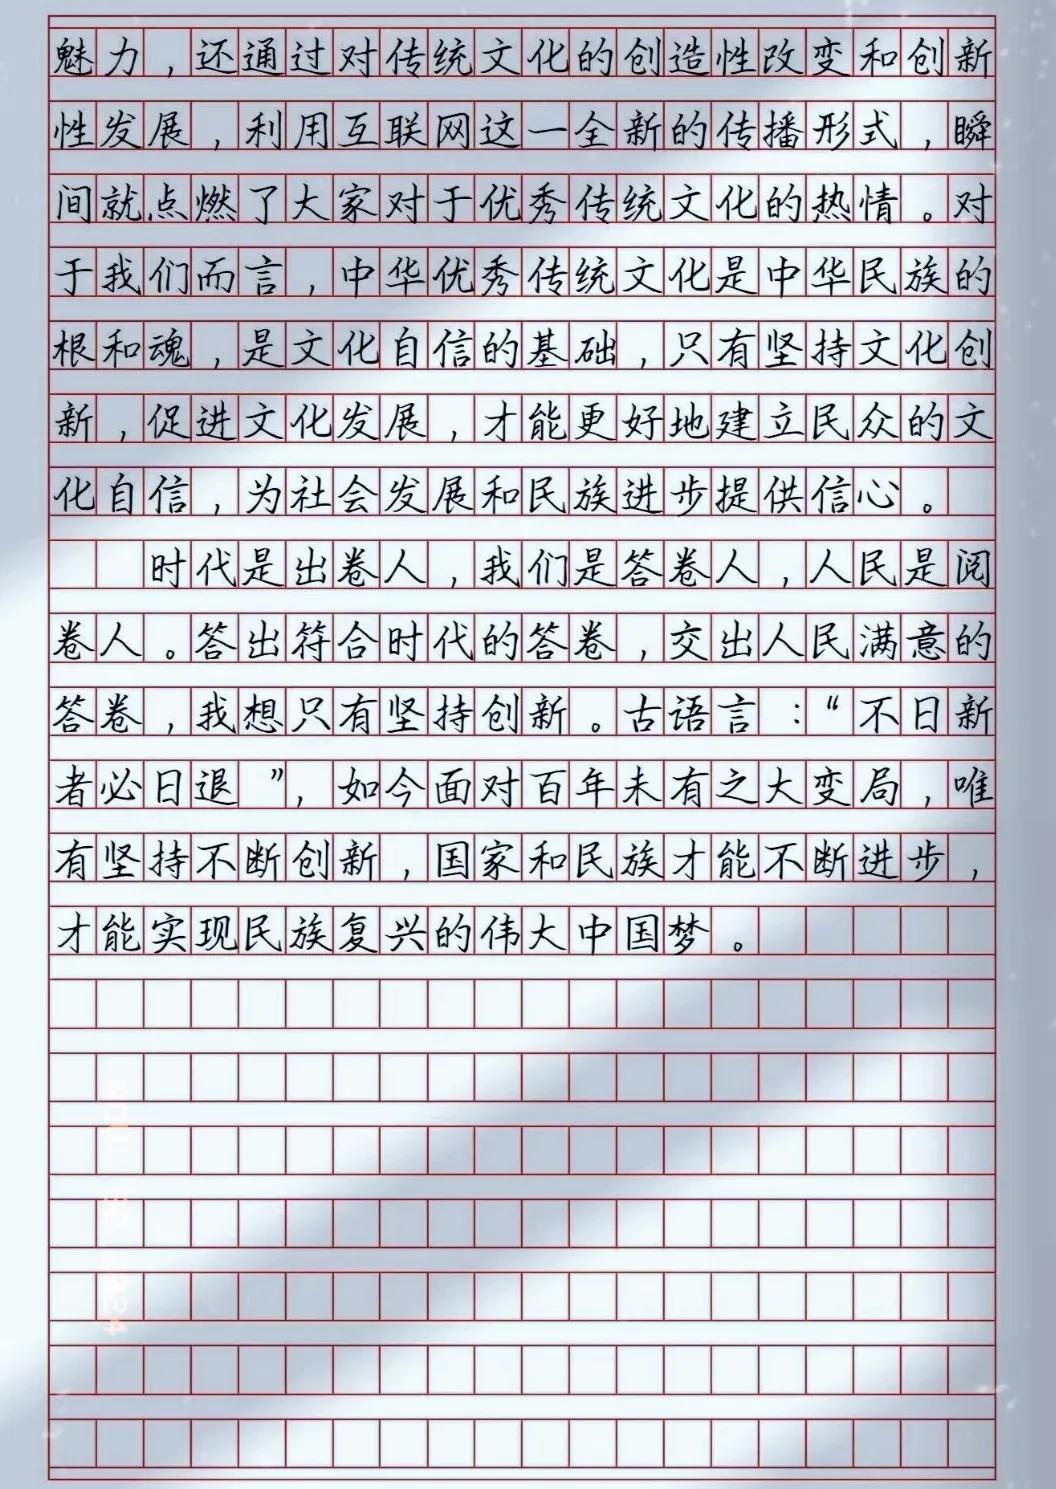 魅力，还通过对传统文化的创造性改变和创新
性发展，利用互联网这一全新的传播形式，瞬
间就点燃了大家对于优秀传统文化的热情。对
于我们而言，中华优秀传统文化是中华民族的
根和魂，是文化自信的基础，只有坚持文化创
新，促进文化发展，才能更好地建立民众的文
化自信，为社会发展和民族进步提供信心。
时代是出卷人，我们是答卷人，人民是阅
卷人。答出符合时代的答卷，交出人民满意的
答卷，我想只有坚持创新。古语言：“不日新
者必日退”，如今面对百年未有之大变局，唯
有坚持不断创新，国家和民族才能不断进步，
才能实现民族复兴的伟大中国梦。